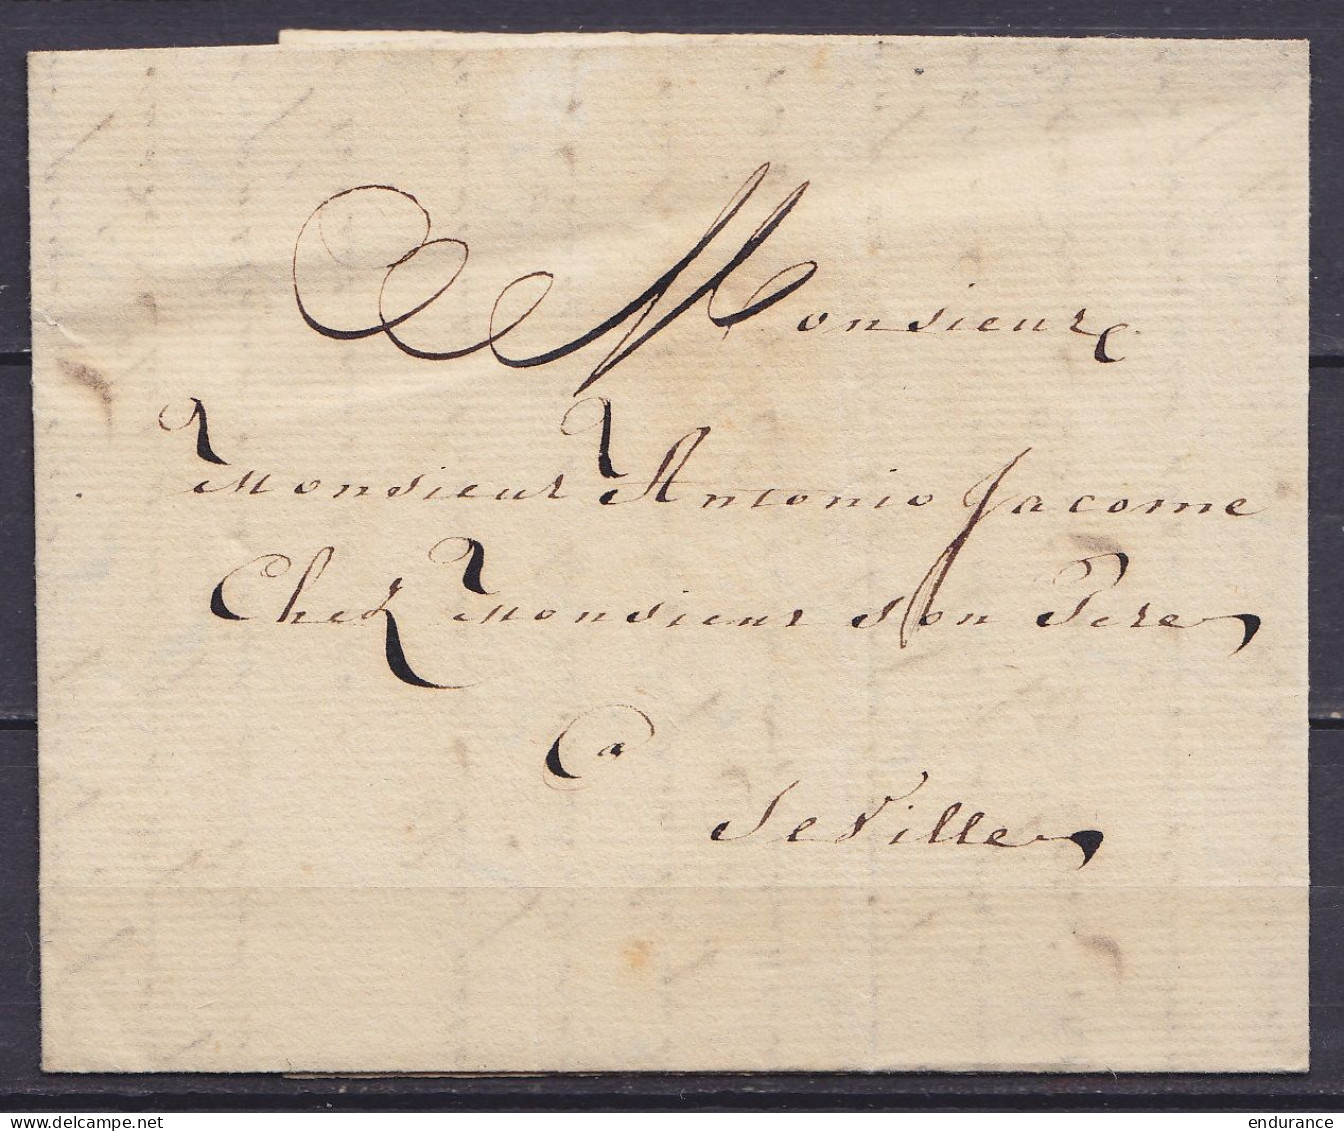 Monsieur
Monsieur Antonio Jacome
Chez Monsieur Son Pere
a
SeVille
delcampe.net
endurance